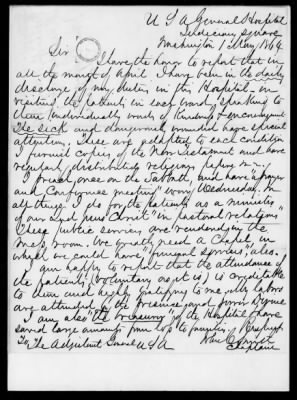 U S A General Hospital
Judiciary Square
Washington 1 May 1864
Sir
I have the honor to report that in
all the month of April I have been in the daily
discharge of my duties in this Hospital in
visiting the patients in each ward, speaking to
them individually words of kindness & encouragement
The sick and dangerously wounded have special
attention. These are adapted to each condition
I furnish copies of the New Testament and have
regular distributing religious
I preach once on the Sabbath, and have a prayer
and Conference meeting every Wednesday. In
all things I do for the patients as a minister
of our Lord Jesus Christ in pastoral relations
These public services are rendered in the
Mess room. We greatly need a Chapel, in
which we could have funeral services, also.
I am happy to report that the attendance of
the patients, voluntary as it is, is creditable
to them and highly gratifying to me. My labors
are attended by the presence and favor
I am also the treasurer of the Hospital & have
saved large amounts from loss to families.
To The Adjutant General U S A
Chaplain